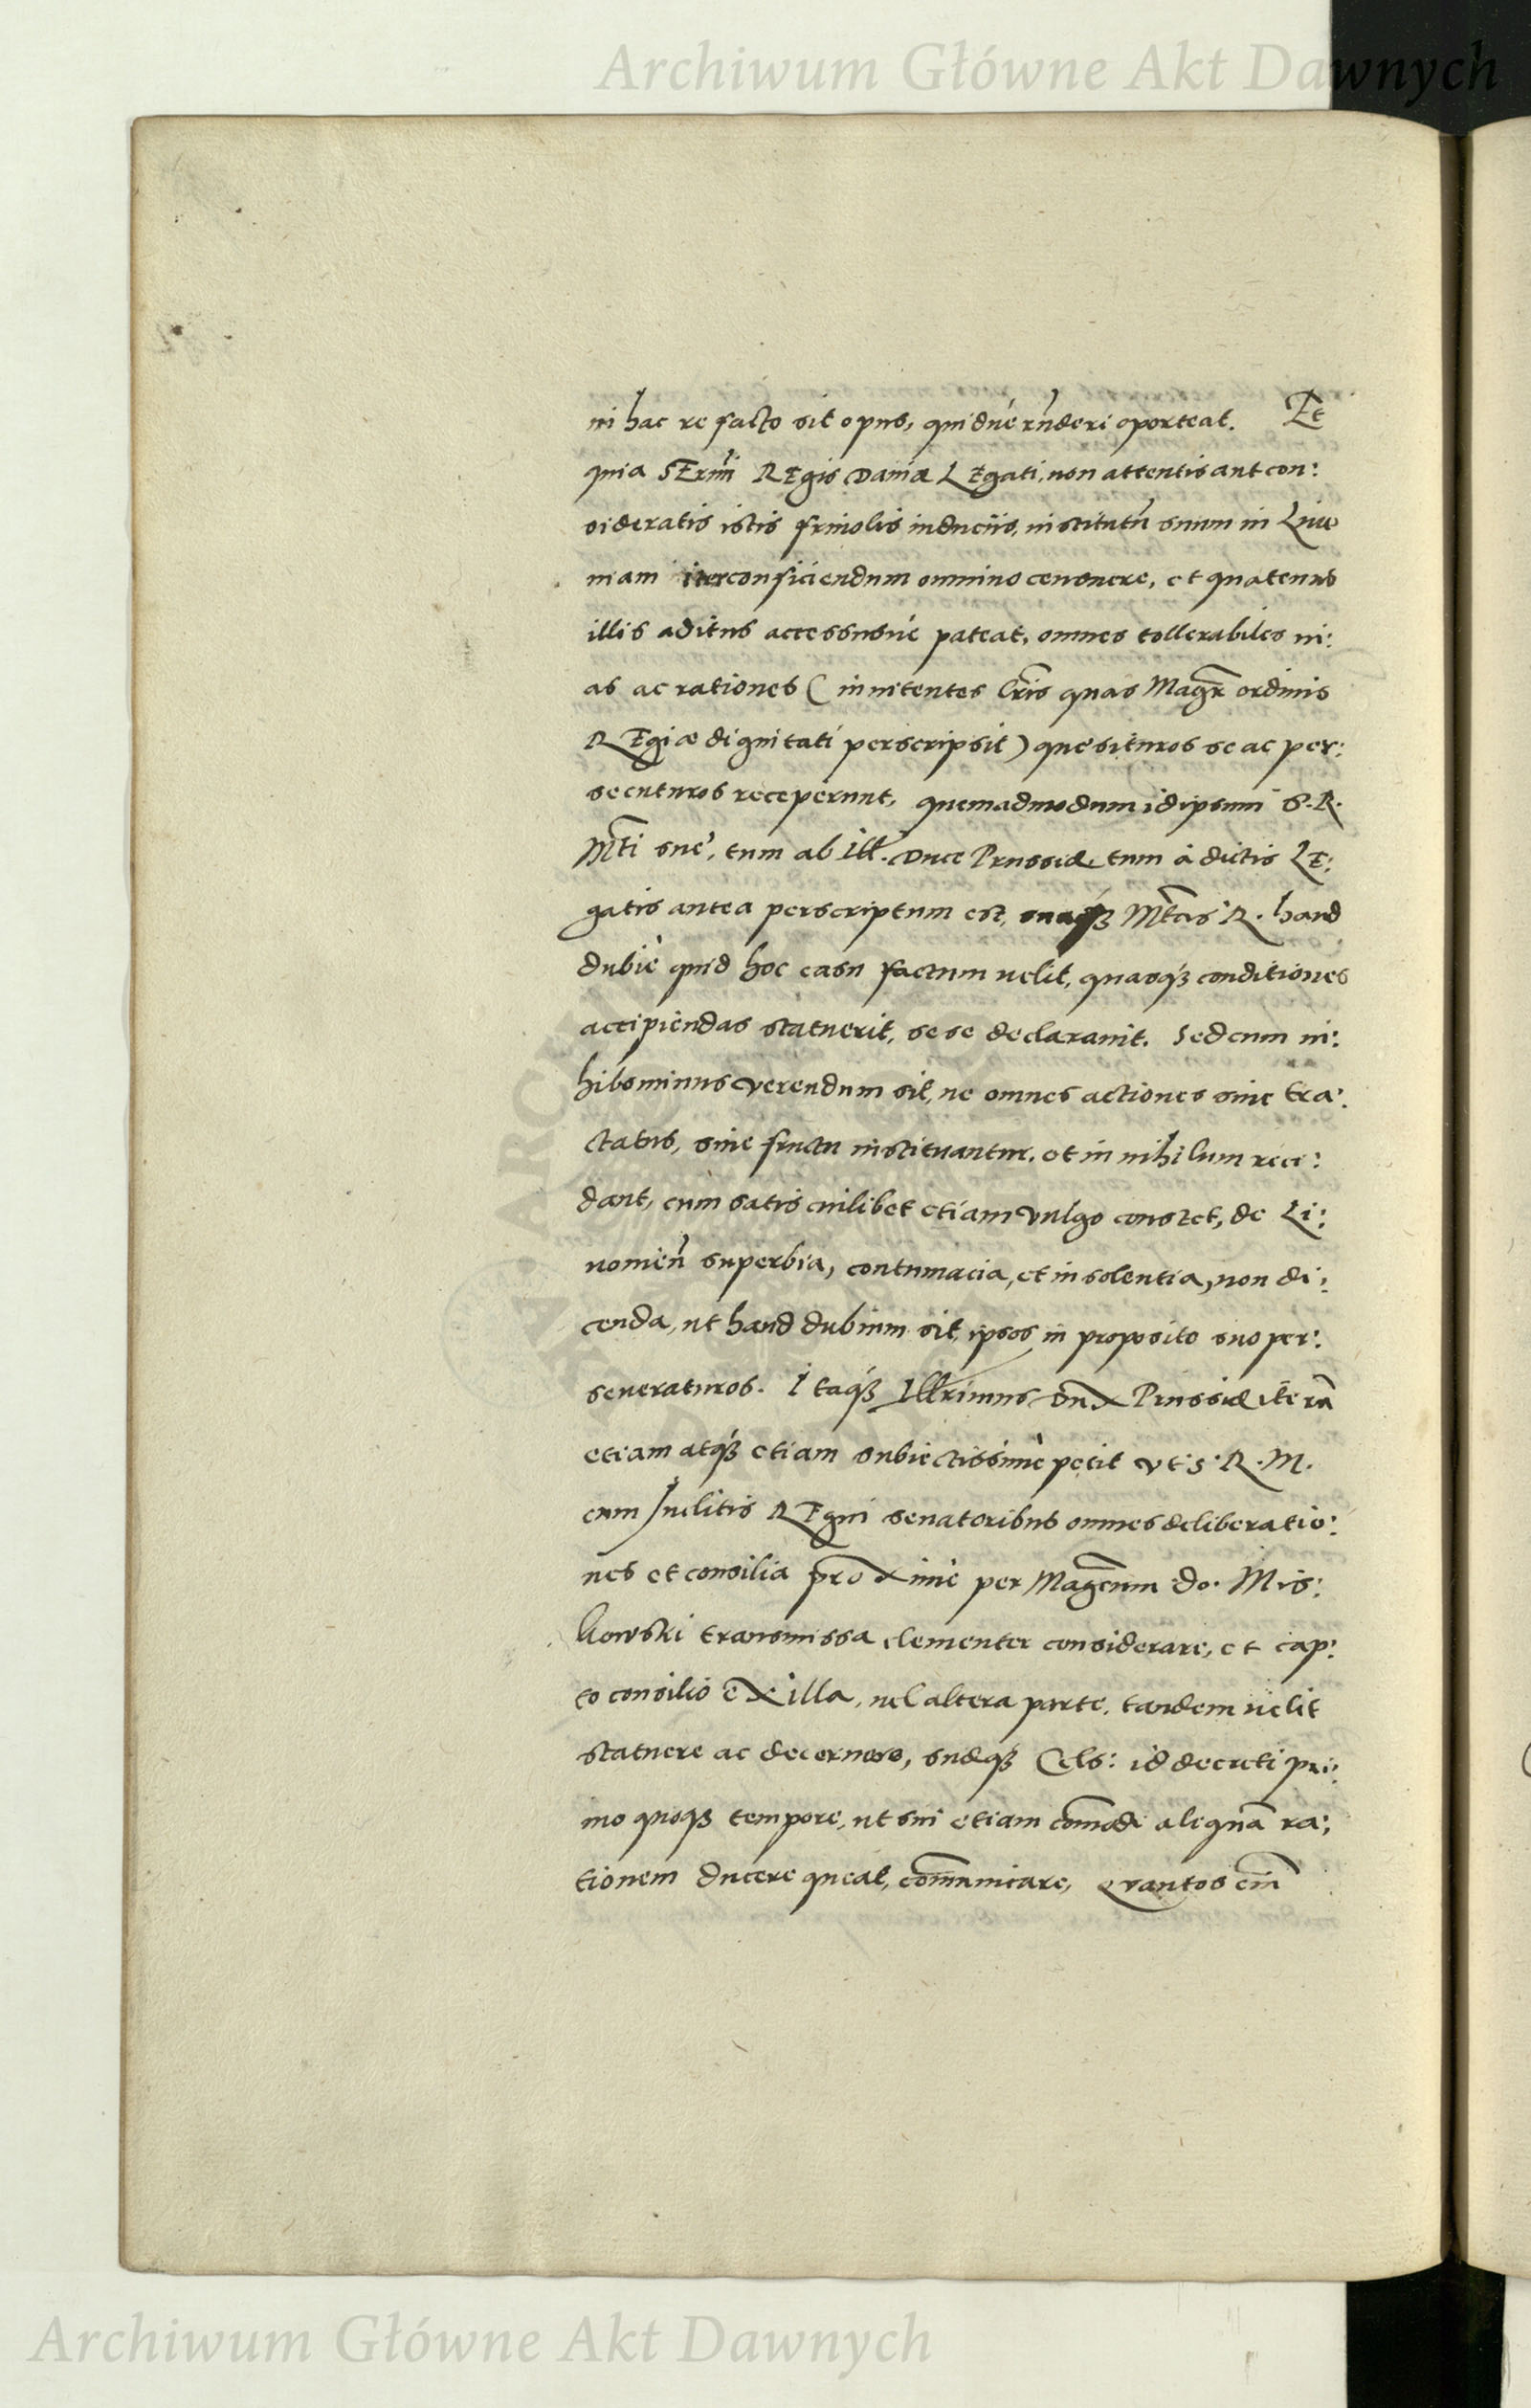 Archiwum Główne Akt Dawnych
in hac re facto sit opus, quidué rñderi oporteat. Et
quia SErmi REgis Daniæ LEgati, non attentis aut con:
sideratis istis friuolis induciis, institutũ suum in Liuo
niam iter conficiendum omnino censuere, et quatenus
illis aditus accessusué pateat, omnes tollerabiles ui:
as ac rationes (innitentes Lr̃is quas Magr̃ ordinis
REgiæ dignitati perscripsit) quesituros se ac per:
secuturos receperunt, quemadmodum id ipsum S. R.
Mti sue, tum ab Ill. Duce Prussiæ tum à dictis LE:
gatis antea perscriptum est, suaqꝫ Mtas R. haud
dubiè quid hoc casu factum uelit, quasqꝫ conditiones
accipiendas statuerit, sese declarauit. Sed cum ni:
hilominus verendum sit, ne omnes actiones siue tra:
ctatus, sine fructu instituantur, et in nihilum reci:
dant, cum satis cuilibet etiam vulgo constet, de Li:
uonien̄ superbia, contumacia, et insolentia, non di:
cenda, ut haud dubium sit, ipsos in proposito suo per:
seueraturos. Itaqꝫ Illrimus Dux Prussiæ iterũ
etiam atqꝫ etiam subiectissimè petit vt S. R. M.
cum Inclitis REgni senatoribus omnes deliberatio:
nes et consilia proximè per Magcum Do. Mis:
kowski transmissa clementer considerare, et cap:
to consilio ex illa, uel altera parte, tandem uelit
statuere ac decernere, suæqꝫ Cels: id decreti pri:
mo quoqꝫ tempore, ut sui etiam com̃odi aliquã ra:
tionem ducere queat, com̃unicare, Quantos em̃
Archiwum Główne Akt Dawnych